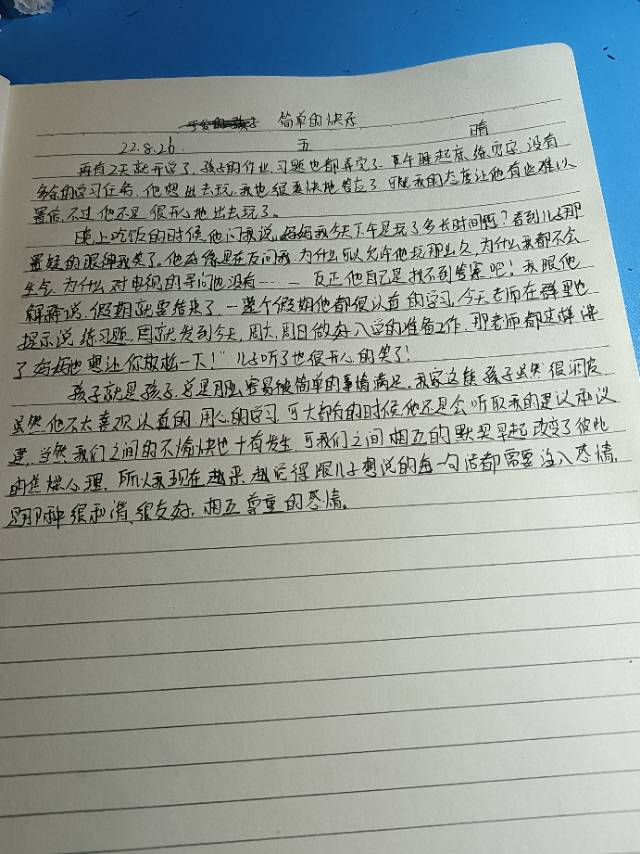 简单的快乐
22.8.26 五 晴
再有2天就开学了，孩子的作业，习题也都弄完了。下午睡起床，练完字，没有
多余的学习任务，他想出去玩，我也很爽快地答应了，可能我的态度让他有些难以
置信，不过他还是很开心地出去玩了。
晚上吃饭的时候他问我说，妈妈我今天下午是玩了多长时间啊？看到儿子那
置疑的眼神我笑了，他好像是在反问我为什么可以允许他玩那么久，为什么我都不会
生气，为什么对电视的寻问他没有……反正他自己是找不到答案吧！我跟他
解释说，假期就要结束了，一整个假期他都很认真的学习，今天老师在群里也
提示说，练习题，周就发到今天，周六，周日做好入学的准备工作，那老师都这样讲
了妈妈也想让你放松一下！”儿子听了也很开心的笑了！
孩子就是孩子，总是那么容易被简单的事情满足，我家这熊孩子虽然很调皮
虽然他不太喜欢认真的用心的学习，可大部分的时候他还是会听取我的建议和议
建，当然我们之间的不愉快也十有发生，可我们之间相互的默契早起改变了彼此
的焦燥心理，所以我现在越来越觉得跟儿子想说的每一句话都需要注入感情，
是那种很和谐，很友好，相互尊重的感情。